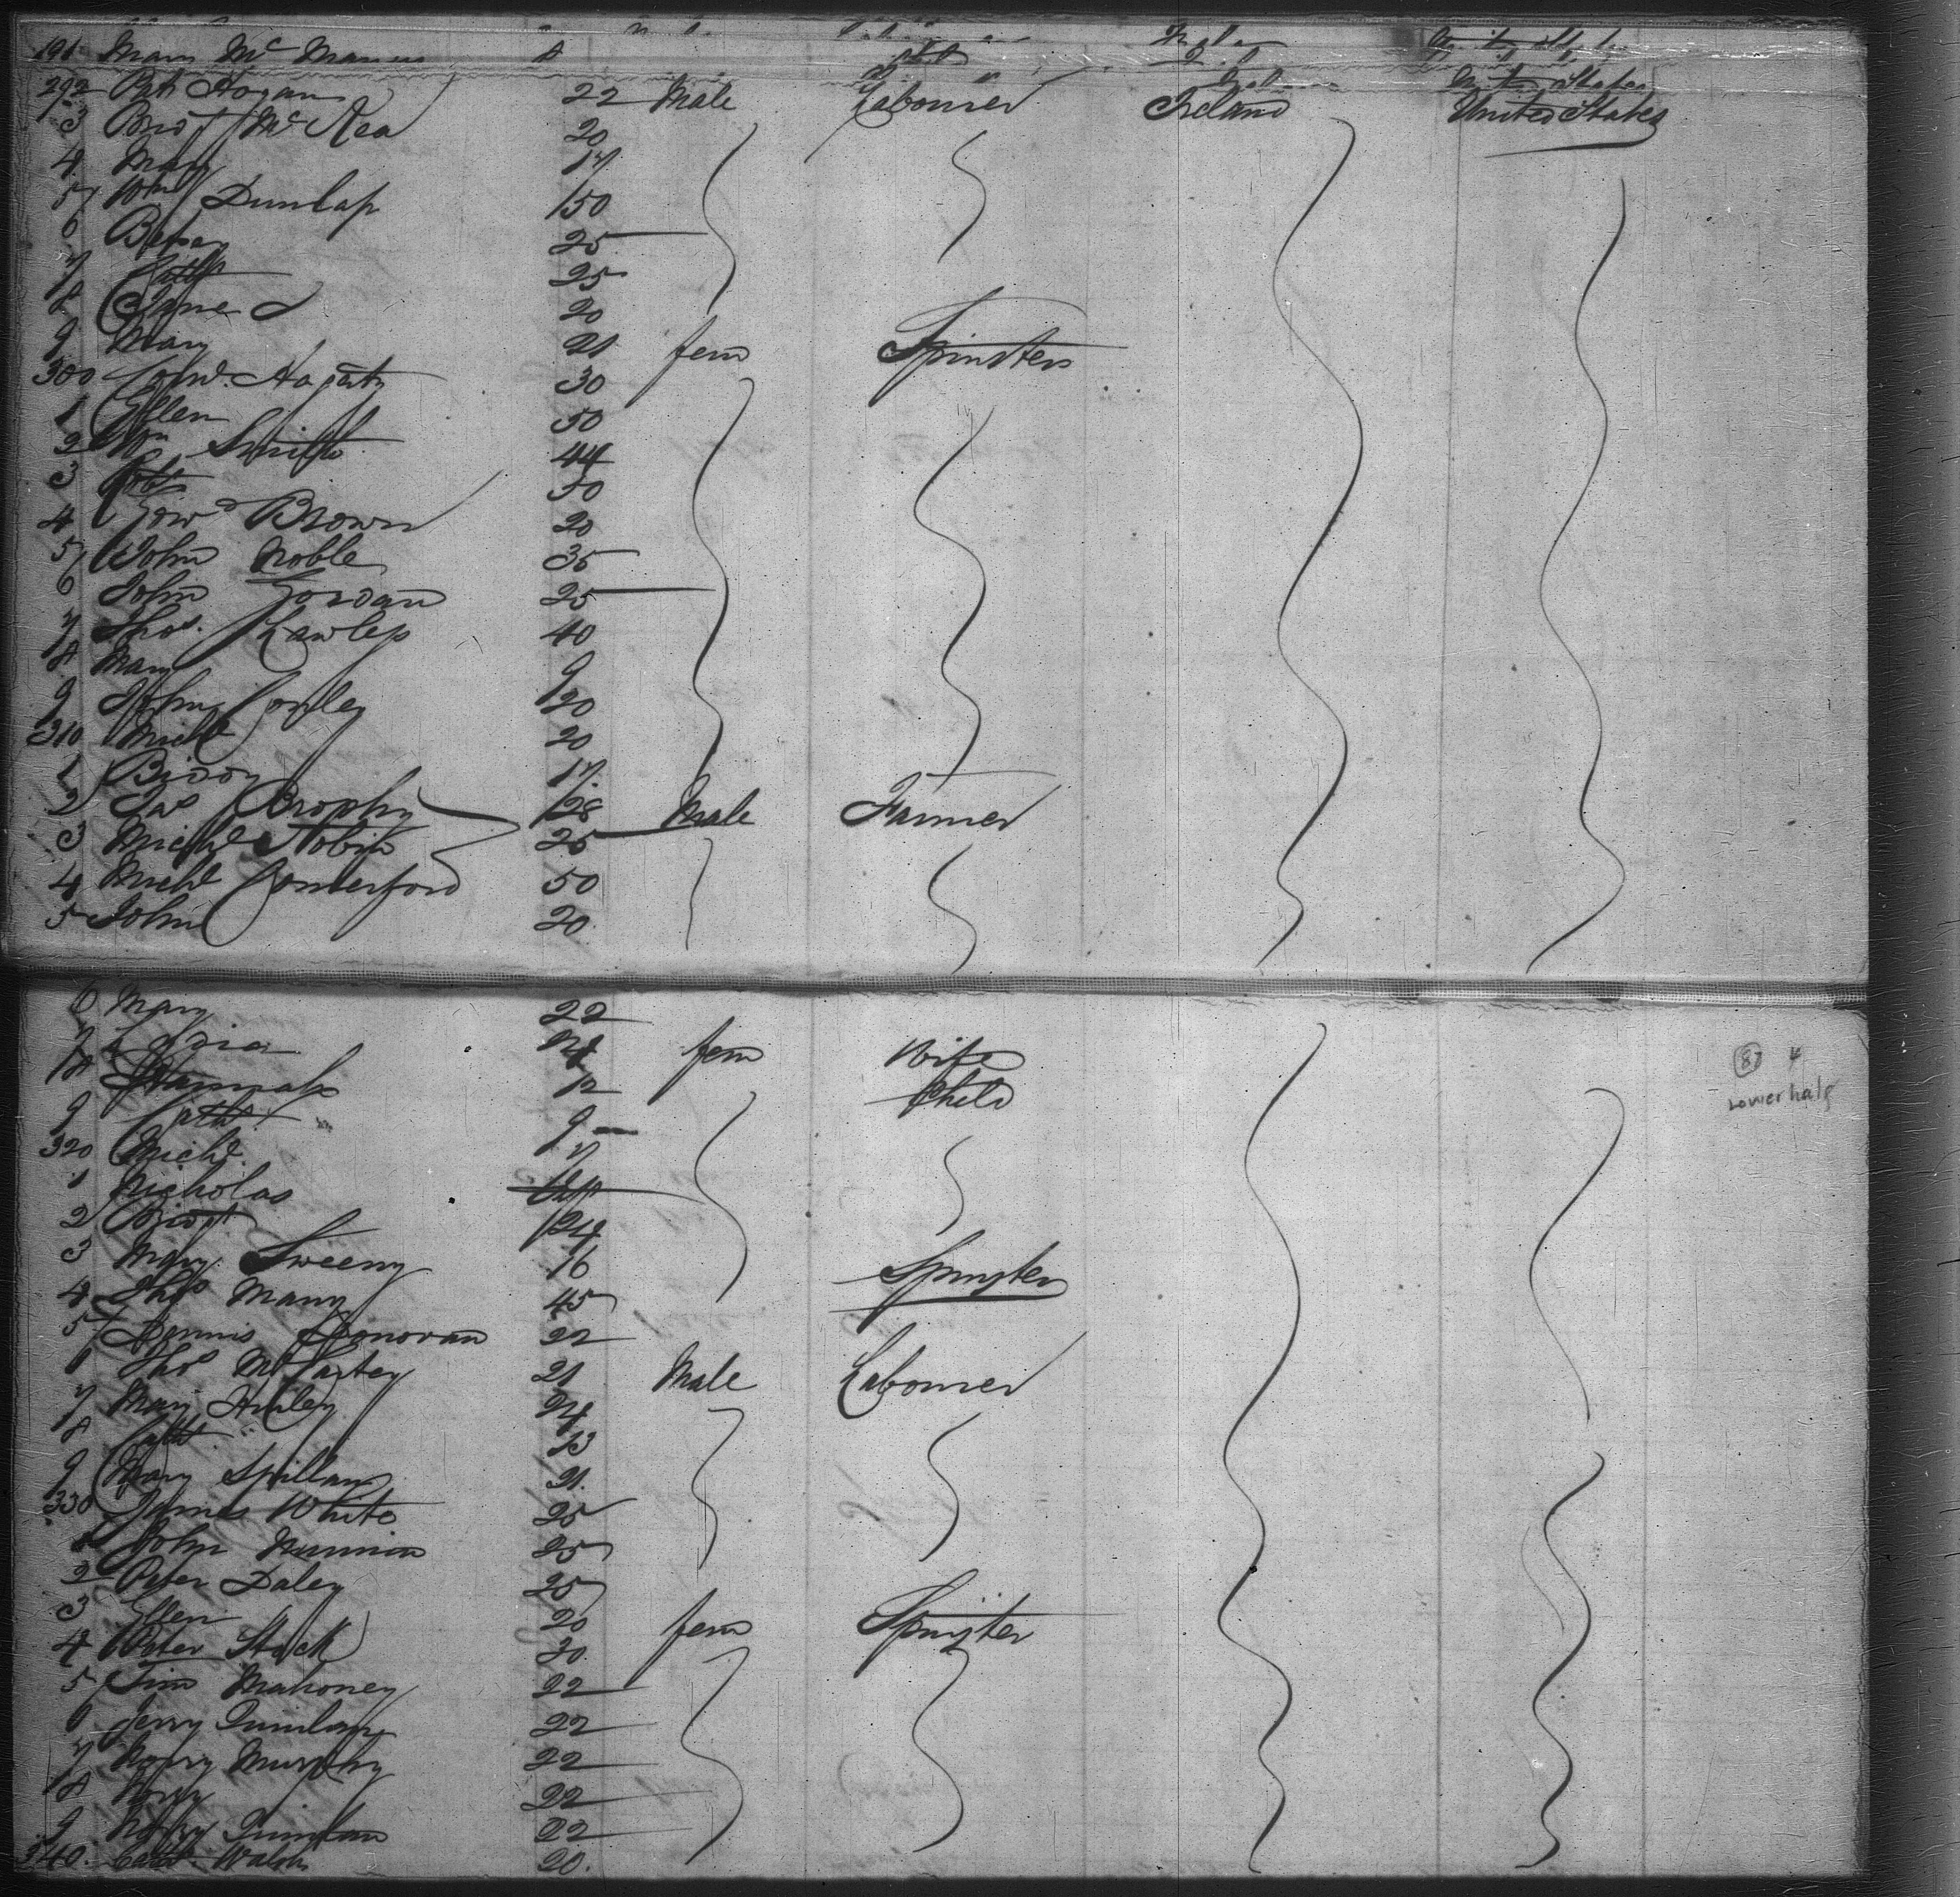 291 Mary McManus 8
292 Pat Hogan 22 Male Labourer Ireland United States
3 Bridt McKea 20
4 Mary 17
5 Wm Dunlap 50
6 Betsy 25
7 Cath 25
8 Jane 20
9 Mary 21 fem Spinsters
300 Edwd. Hagarty 30
1 Ellen 50
2 Wm Smith 44
3 Robt 30
4 Edwd Brown 20
5 John Noble 35
6 John Gordan 25
7 Thos. Lawler 40
8 Mary 9
9 John Conley 20
310 Michl 20
1 Biddy 17
2 Jas Brophy 28 Male Farmer
3 Michl Tobin 25
4 Michl Commerford 50
5 John 20
6 Mary 22
7 Lydia 24 fem Wife
8 Hannah 12 Child
9 Cath 9
320 Michl. 7
1 Nicholas
2 Bridt 24
3 Mary Sweeny 16 Spinster
4 Thos Many 45
5 Dennis Donovan 22
6 Thos McCartey 21 Male Labourer
7 Mary 24
8 Cath " 13
9 Mary Spillan 21
330 James White 25
1 John 25
2 Peter Daley 25
3 Ellen 20 fem Spinster
4 Peter Stack 30
5 Tim Mahoney 22
6 Jerry Quinlan 22
7 Norry Murphy 22
8 Norry 22
9 Quinlan 22
340 Cath. Walsh 20
87 4
Lower half